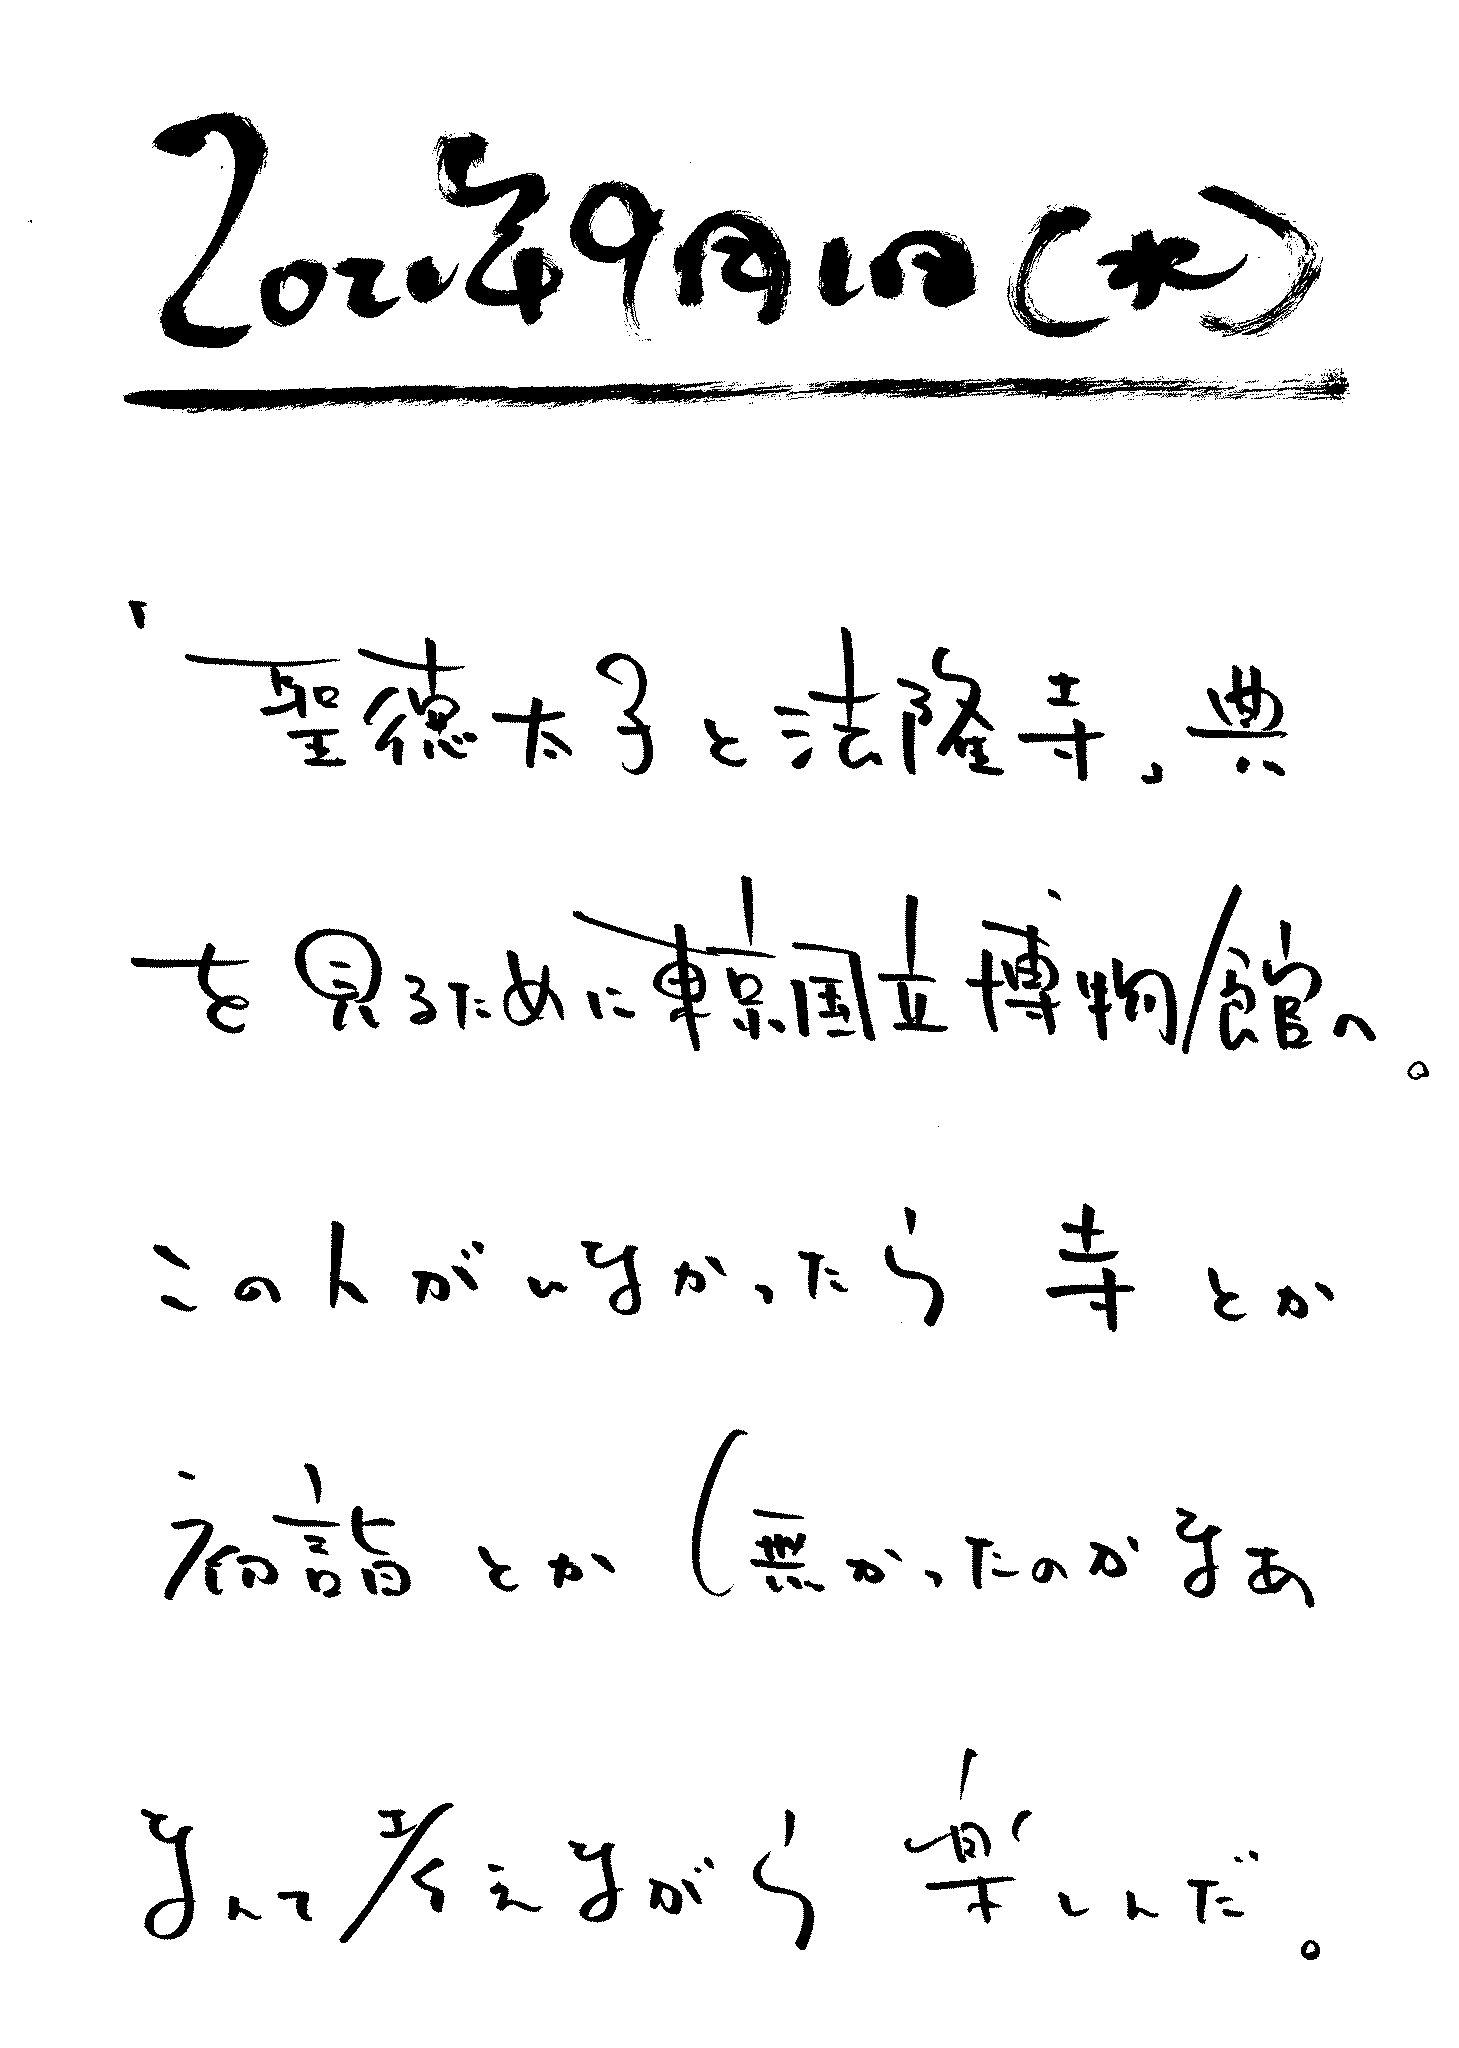 2021年9月1日(水)
「聖徳太子と法隆寺」典
を見るために東京国立博物館へ。
この人がいなかったら 寺とか
初詣とか(無かったのかなあ
なんて考えながら 楽しんだ。